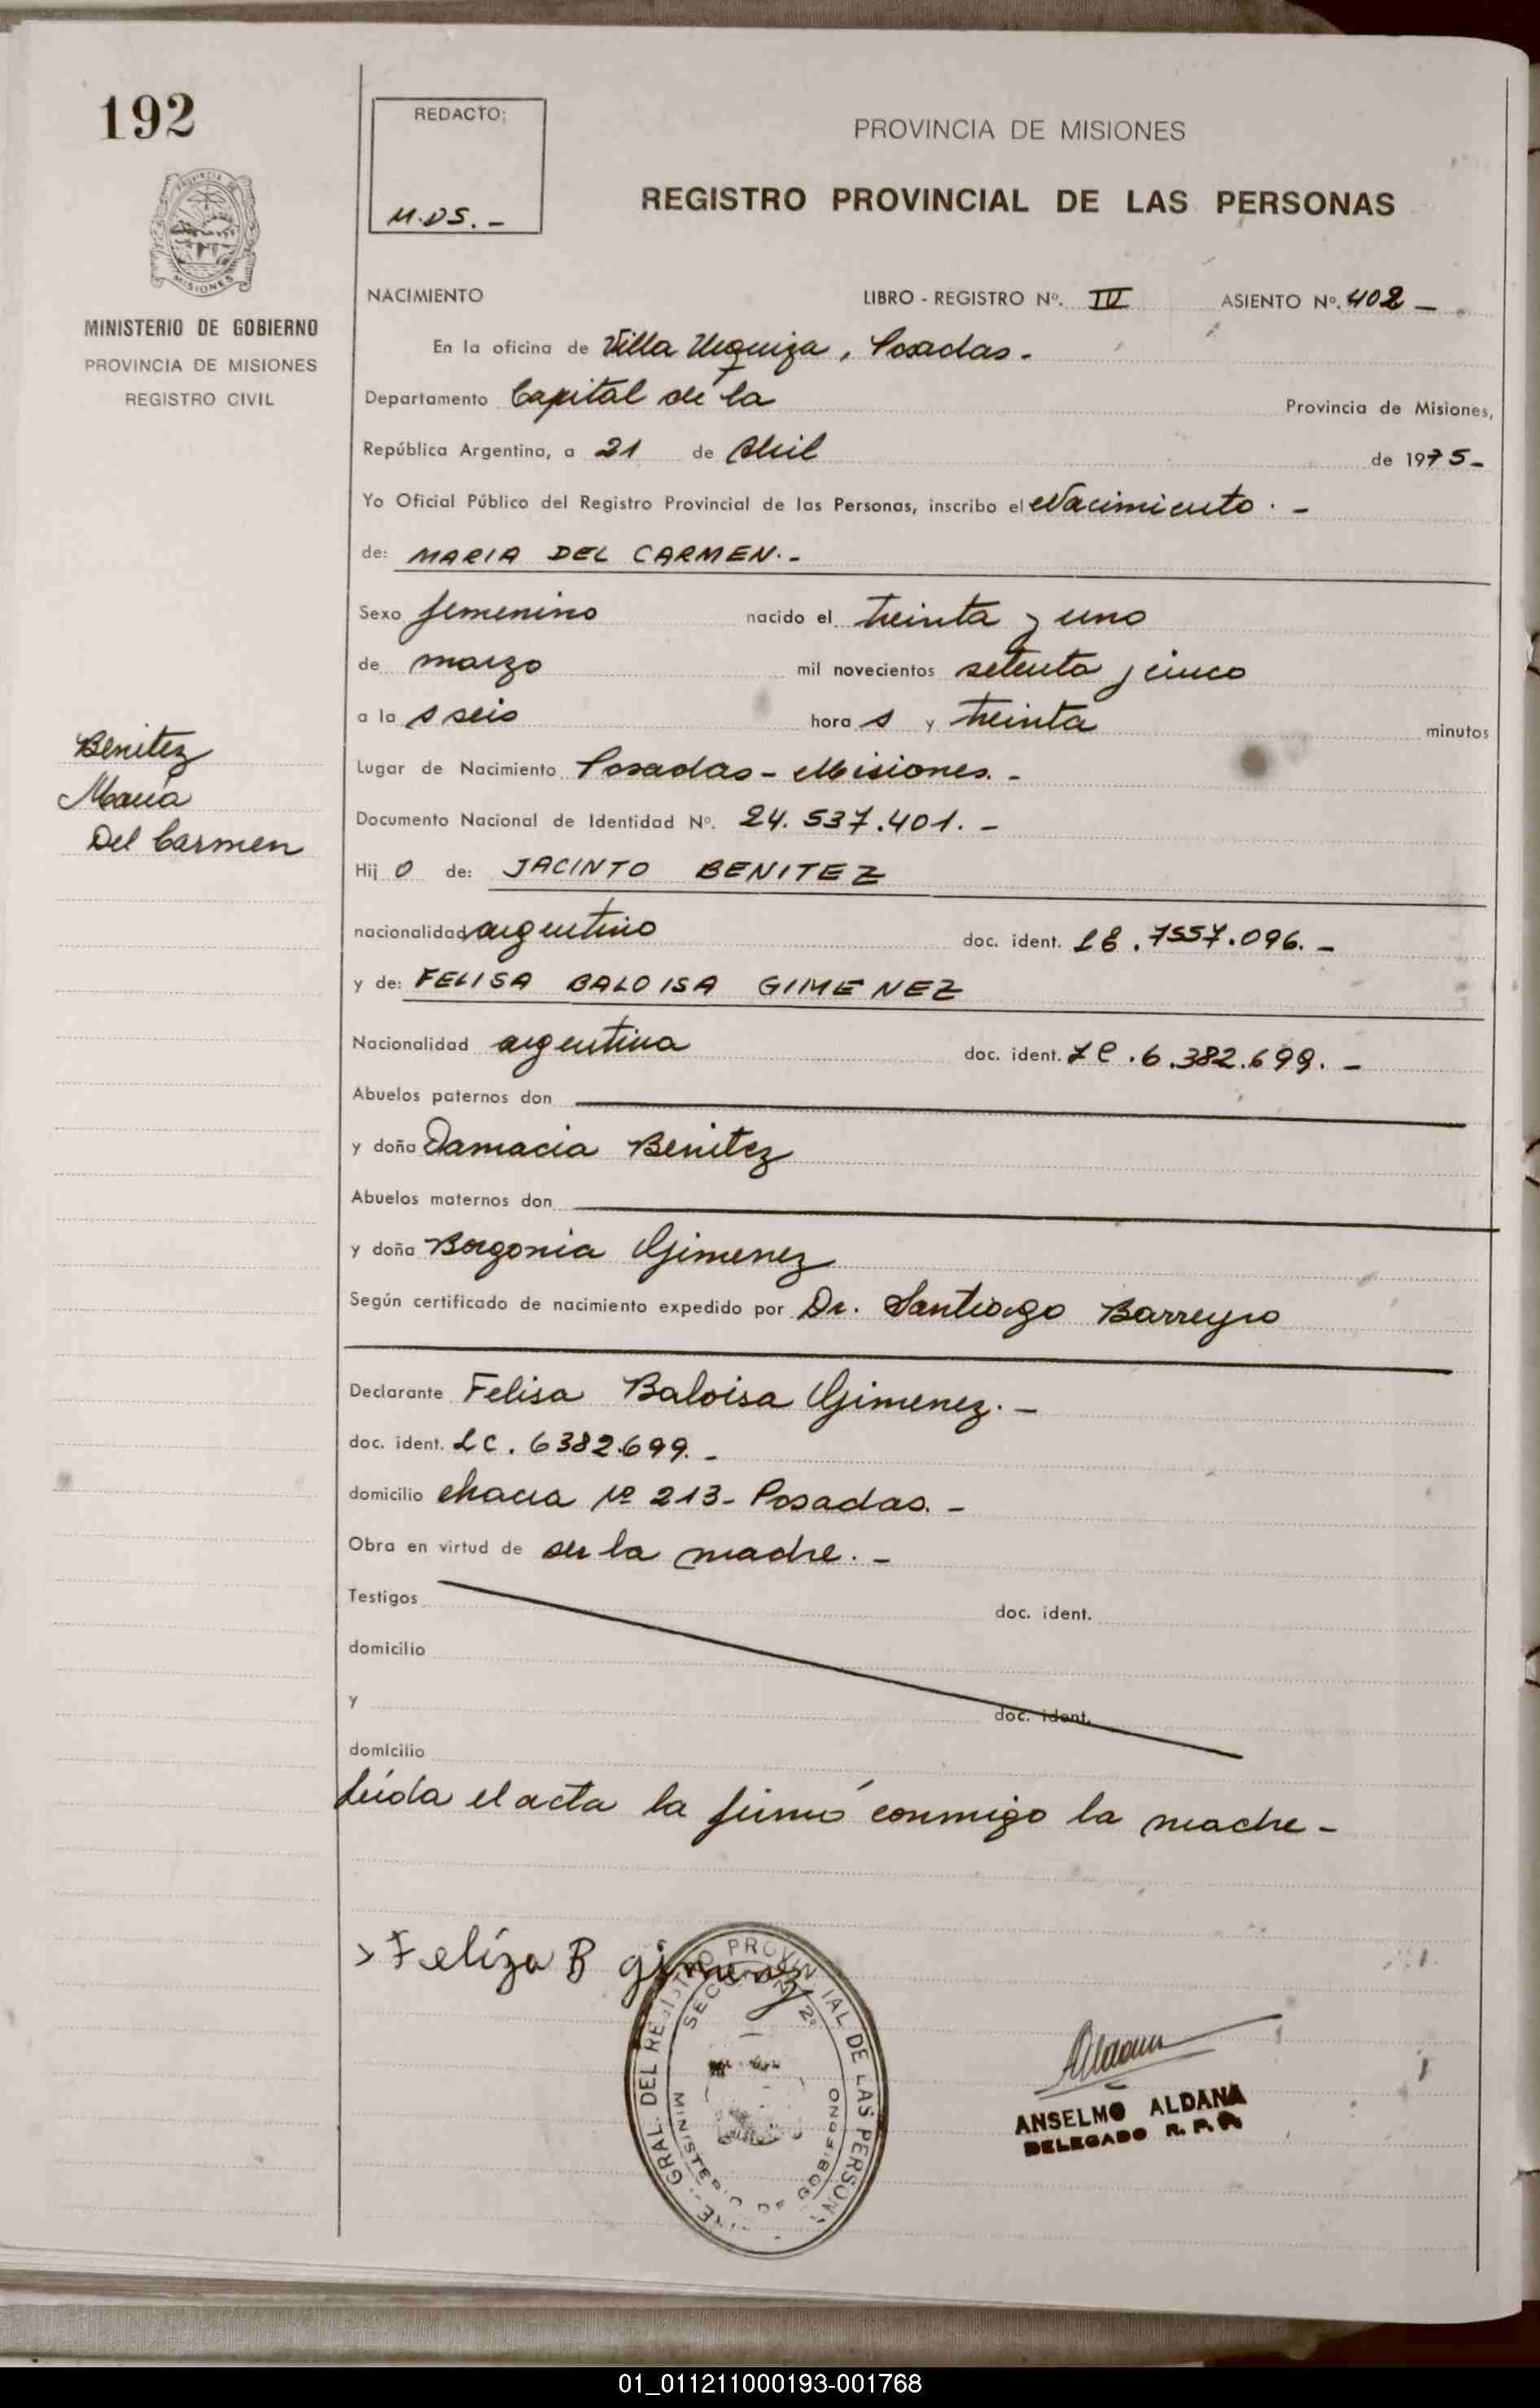 192
REDACTO:
M.DS.-
PROVINCIA DE MISIONES
REGISTRO PROVINCIAL DE LAS PERSONAS
PROVINCIA DE
MISIONES
MINISTERIO DE GOBIERNO
PROVINCIA DE MISIONES
REGISTRO CIVIL
NACIMIENTO LIBRO - REGISTRO Nº. IV ASIENTO Nº. 402 -
En la oficina de Villa Urquiza, Posadas.-
Departamento Capital de la Provincia de Misiones,
República Argentina, a 21 de Abril de 1975-
Yo Oficial Público del Registro Provincial de las Personas, inscribo el Nacimiento.-
de: MARIA DEL CARMEN.-
Sexo femenino nacido el treinta y uno
de marzo mil novecientos setenta y cinco
a la s seis hora s y treinta minutos
Benitez
Maria
Del Carmen
Lugar de Nacimiento Posadas - Misiones.-
Documento Nacional de Identidad Nº. 24.537.401.-
Hij o de: JACINTO BENITEZ
nacionalidad argentino doc. ident. LE.7557.096.-
y de: FELISA BALOISA GIMENEZ
Nacionalidad argentina doc. ident. LC.6.382.699.-
Abuelos paternos don
y doña Damacia Benitez
Abuelos maternos don
y doña Borgonia Gimenez
Según certificado de nacimiento expedido por Dr. Santiago Barreyro
Declarante Felisa Baloisa Gimenez.-
doc. ident. LC. 6382.699.-
domicilio chacra Nº 213- Posadas.-
Obra en virtud de ser la madre.-
Testigos doc. ident.
domicilio
y doc. ident.
domicilio
Leída el acta la firmó conmigo la madre-
Felíza B gimenez
GRAL. DEL REGISTRO PROVINCIAL DE LAS PERSON
SECCION 2º
MINISTERIO DE GOBIERNO
Aldana
ANSELMO ALDANA
DELEGADO R. P. P.
01_011211000193-001768